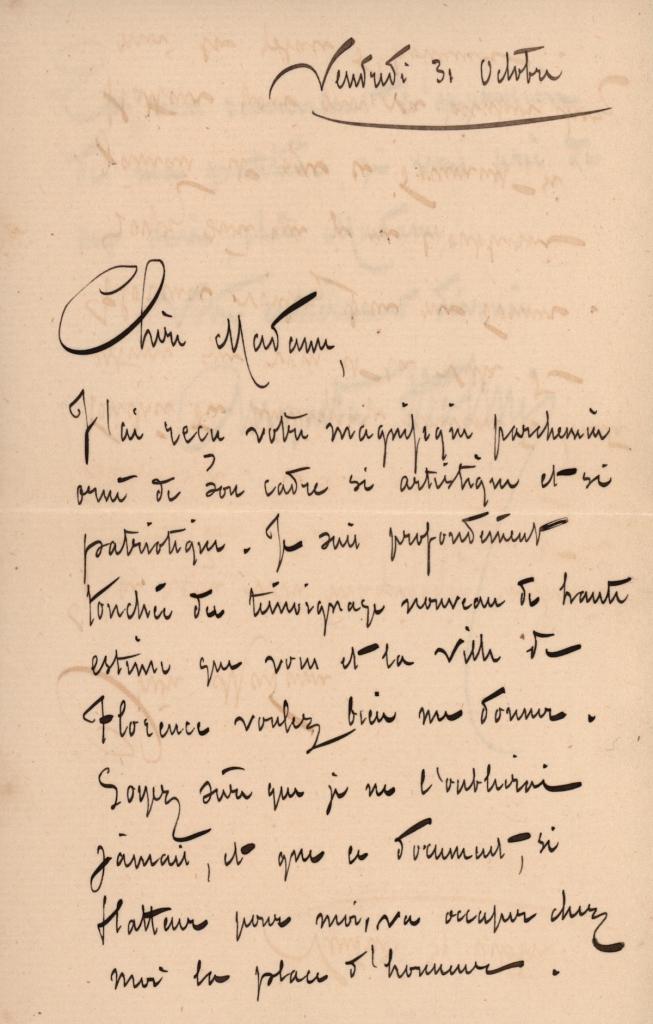 Vendredi 31 Octobre
Chère Madame,
J'ai reçu votre magnifique parchemin
orné de son cadre si artistique et si
patriotique. Je suis profondément
touchée du témoignage nouveau de haute
estime que vous et la ville de
Florence voulez bien me donner.
Soyez sûre que je ne l'oublierai
jamais, et que ce document, si
flatteur pour moi, va occuper chez
moi la place d'honneur.